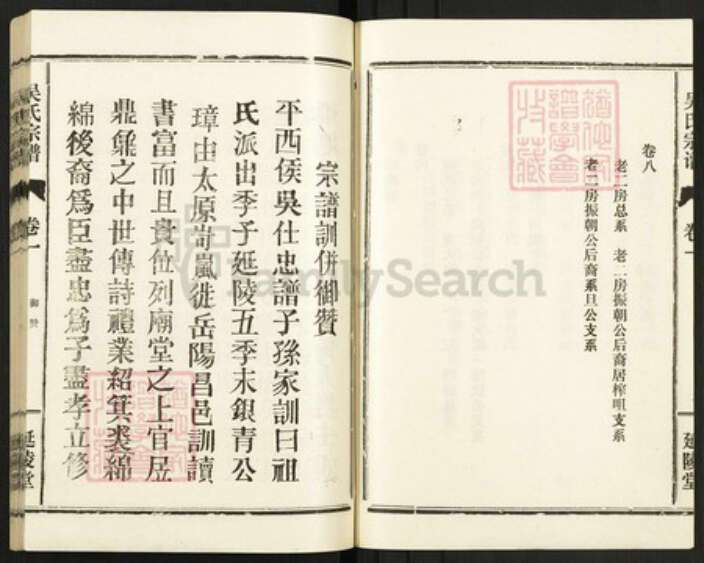 吴氏宗谱
卷一
延陵堂
卷八
老二房总系 老二房振朝公后裔居榨咀支系
老二房振朝公后裔系旦公支系
宗譜訓併御贊
平西侯吳仕忠譜子孫家訓曰祖
氏派出季子延陵五季末銀青公
璋由太原岢嵐徙岳陽昌邑訓讀
書富而且貴位列廟堂之上官居
鼎鼐之中世傳詩禮業紹箕裘綿
綿後裔爲臣盡忠爲子盡孝立修
吴氏宗谱
卷一
御贊
延陵堂
FamilySearch